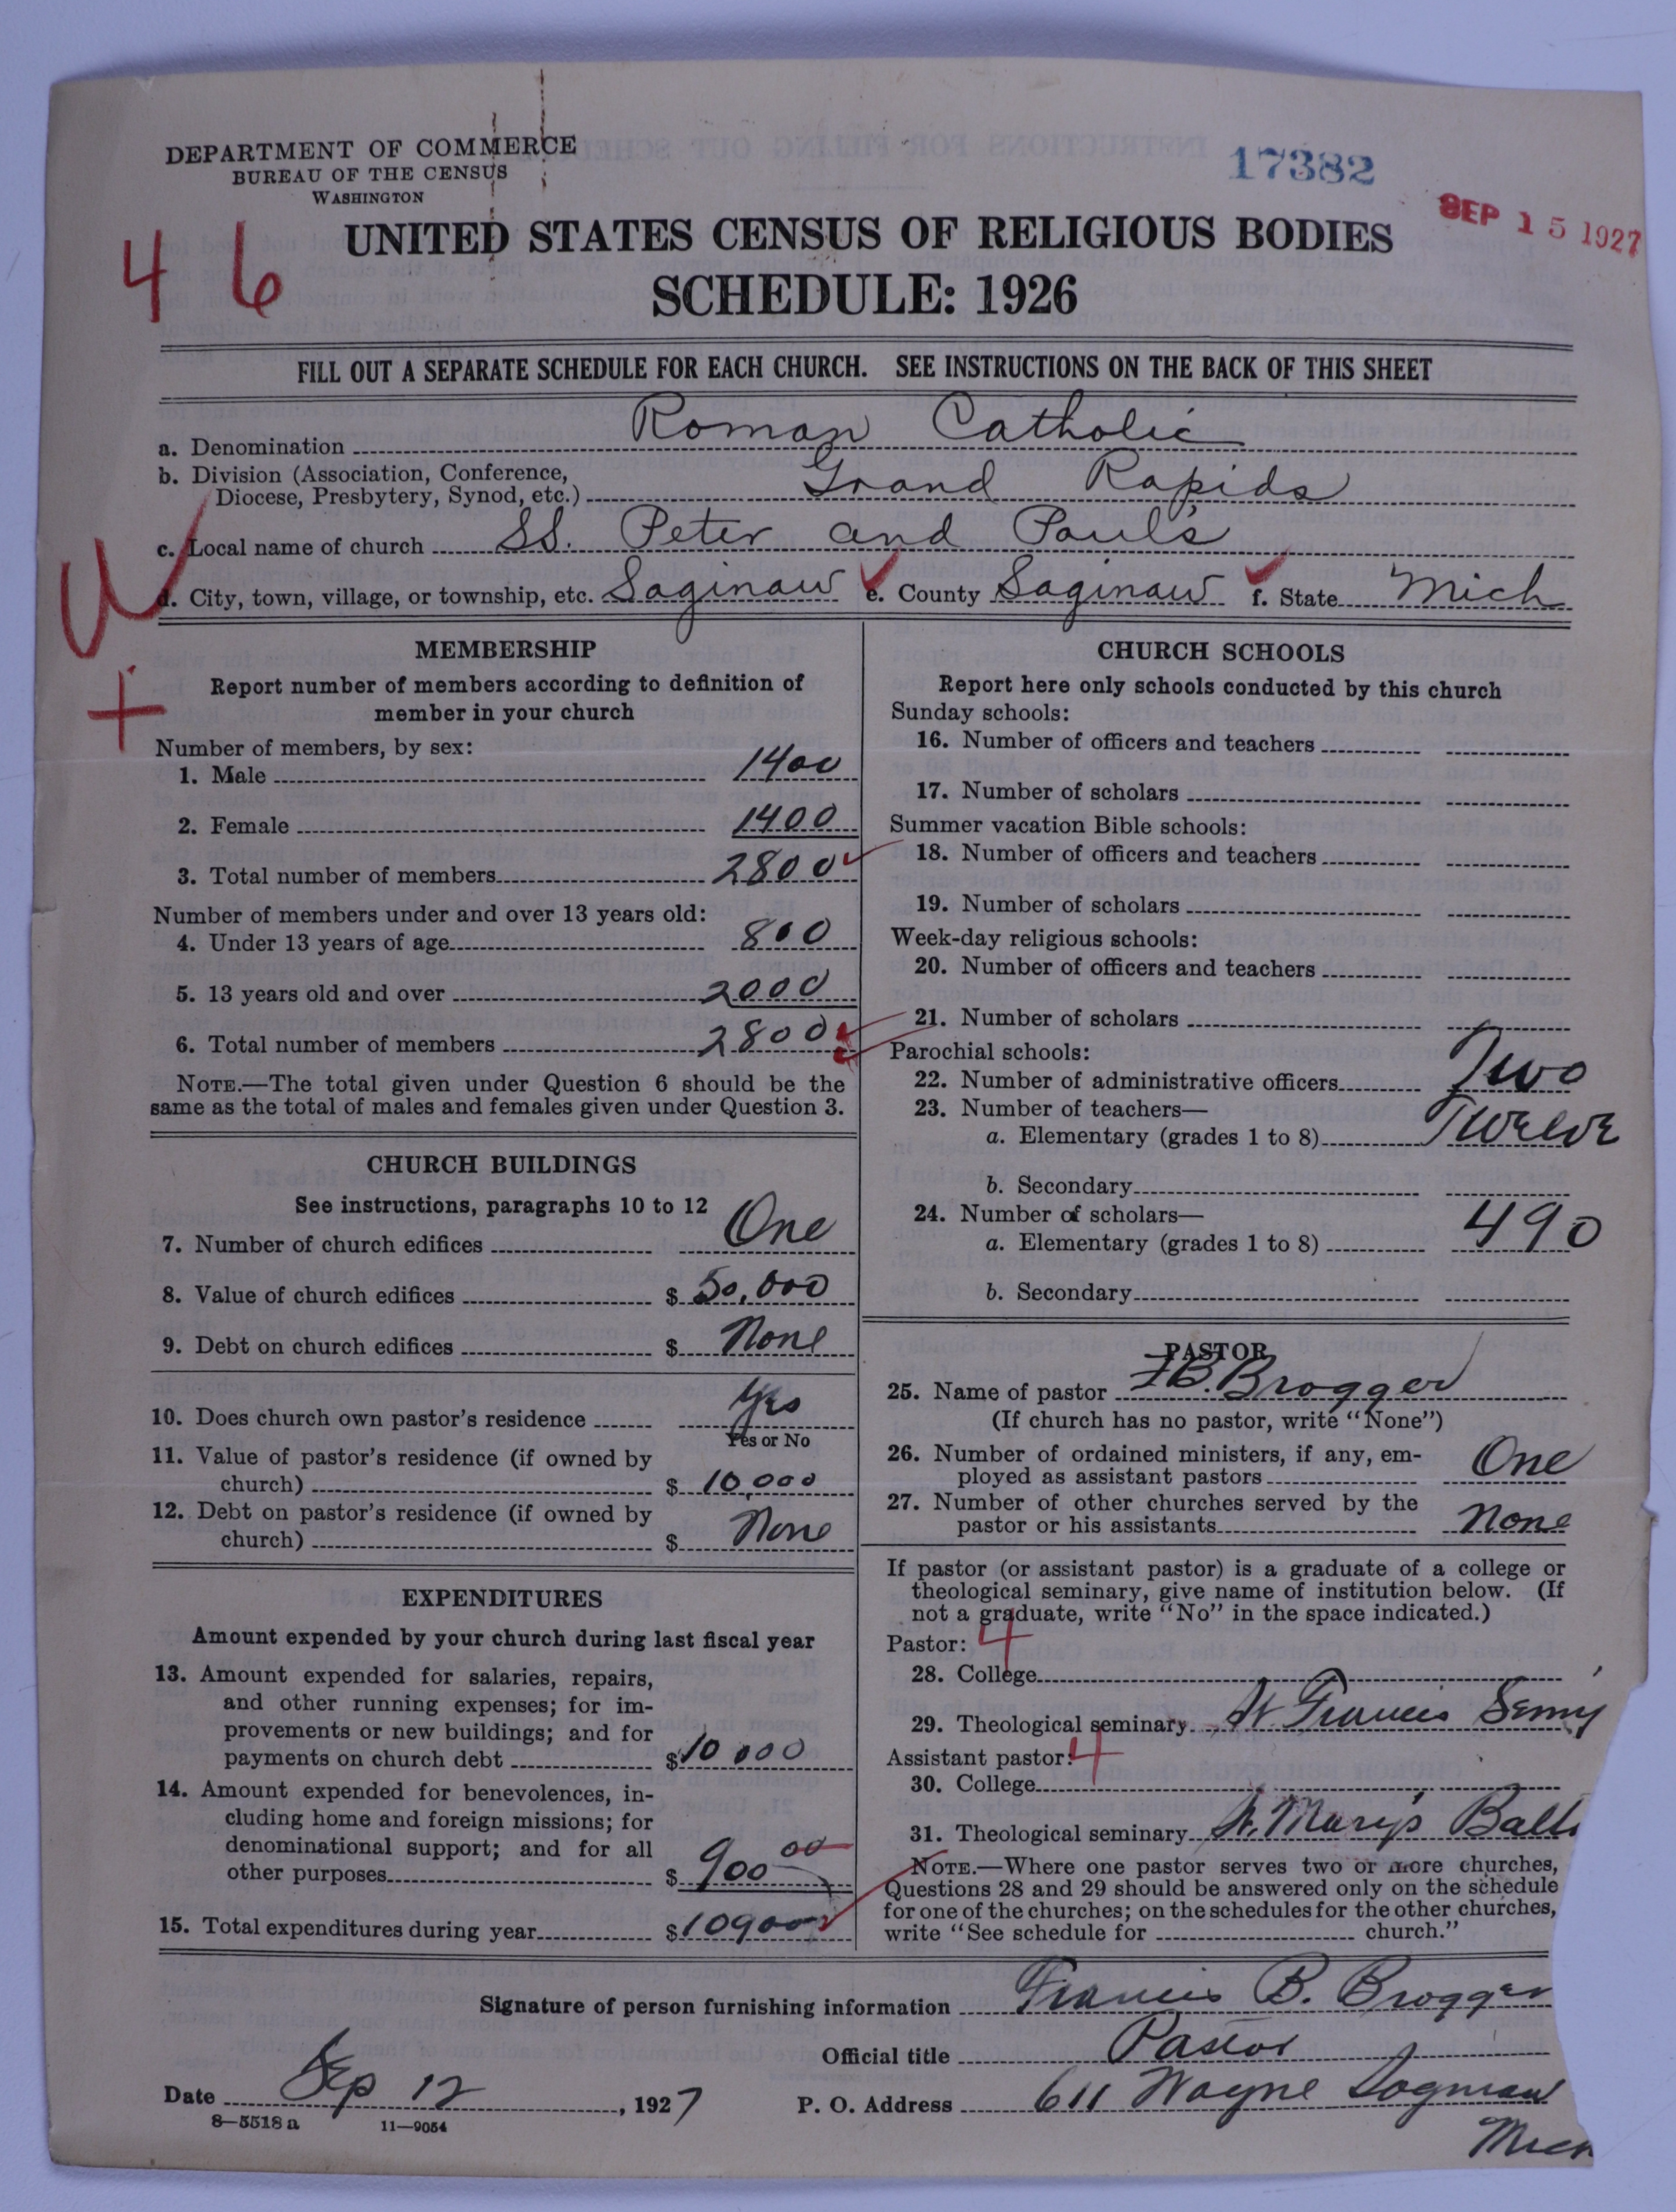 DEPARTMENT OF COMMERCE
BUREAU OF THE CENSUS
WASHINGTON
17382
SEP 15 1927
46
UNITED STATES CENSUS OF RELIGIOUS BODIES
SCHEDULE: 1926
FILL OUT A SEPARATE SCHEDULE FOR EACH CHURCH. SEE INSTRUCTIONS ON THE BACK OF THIS SHEET
a. Denomination Roman Catholic
b. Division (Association, Conference,
Diocese, Presbytery, Synod, etc.) Grand Rapids
c. Local name of church SS. Peter and Paul's
d. City, town, village, or township, etc. Saginaw e. County Saginaw f. State Mich
MEMBERSHIP
Report number of members according to definition of
member in your church
Number of members, by sex:
1. Male 1400
2. Female 1400
3. Total number of members 2800
Number of members under and over 13 years old:
4. Under 13 years of age 800
5. 13 years old and over 2000
6. Total number of members 2800
NOTE.—The total given under Question 6 should be the
same as the total of males and females given under Question 3.
CHURCH BUILDINGS
See instructions, paragraphs 10 to 12
7. Number of church edifices One
8. Value of church edifices $ 50,000
9. Debt on church edifices $ None
10. Does church own pastor's residence Yes
Yes or No
11. Value of pastor's residence (if owned by
church) $ 10,000
12. Debt on pastor's residence (if owned by
church) $ None
EXPENDITURES
Amount expended by your church during last fiscal year
13. Amount expended for salaries, repairs,
and other running expenses; for im-
provements or new buildings; and for
payments on church debt $ 10000
14. Amount expended for benevolences, in-
cluding home and foreign missions; for
denominational support; and for all
other purposes $ 900 00
15. Total expenditures during year $ 10900
CHURCH SCHOOLS
Report here only schools conducted by this church
Sunday schools:
16. Number of officers and teachers
17. Number of scholars
Summer vacation Bible schools:
18. Number of officers and teachers
19. Number of scholars
Week-day religious schools:
20. Number of officers and teachers
21. Number of scholars
Parochial schools:
22. Number of administrative officers Two
23. Number of teachers—
a. Elementary (grades 1 to 8) Twelve
b. Secondary
24. Number of scholars—
a. Elementary (grades 1 to 8) 490
b. Secondary
PASTOR
25. Name of pastor F.B. Brogger
(If church has no pastor, write "None")
26. Number of ordained ministers, if any, em-
ployed as assistant pastors One
27. Number of other churches served by the
pastor or his assistants None
If pastor (or assistant pastor) is a graduate of a college or
theological seminary, give name of institution below. (If
not a graduate, write "No" in the space indicated.)
Pastor: 4
28. College
29. Theological seminary St Francis Semy
Assistant pastor: 4
30. College
31. Theological seminary St. Mary's Balto
NOTE.—Where one pastor serves two or more churches,
Questions 28 and 29 should be answered only on the schedule
for one of the churches; on the schedules for the other churches,
write "See schedule for church."
Signature of person furnishing information Francis B. Brogger
Official title Pastor
Date Sep 12, 1927 P. O. Address 611 Wayne Saginaw
Mich
8—5518 a 11—9054